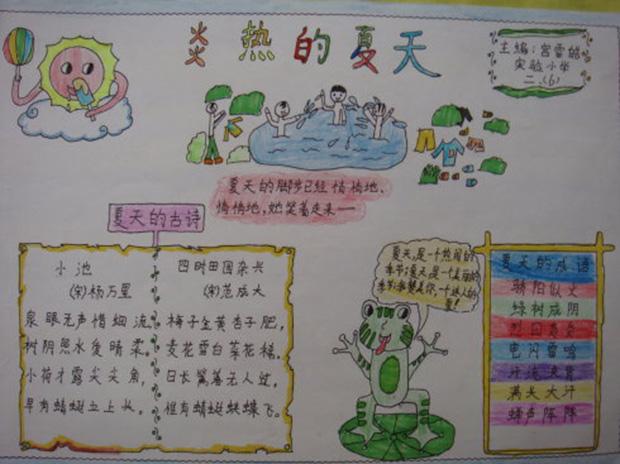 炎热的夏天
主编:宫雪皓
实验小学
二.(6)
夏天的脚步已经悄悄地、
悄悄地,她笑着走来——
夏天的古诗
小池
(宋)杨万里
泉眼无声惜细流,
树阴照水爱晴柔。
小荷才露尖尖角,
早有蜻蜓立上头。
四时田园杂兴
(宋)范成大
梅子金黄杏子肥,
麦花雪白菜花稀。
日长篱落无人过,
惟有蜻蜓蛱蝶飞。
夏天,是一个热闹的
季节;夏天,是一个美丽的
夏天的成语
骄阳似火
绿树成阴
烈日炎炎
电闪雷鸣
汗流浃背
满头大汗
蝉声阵阵